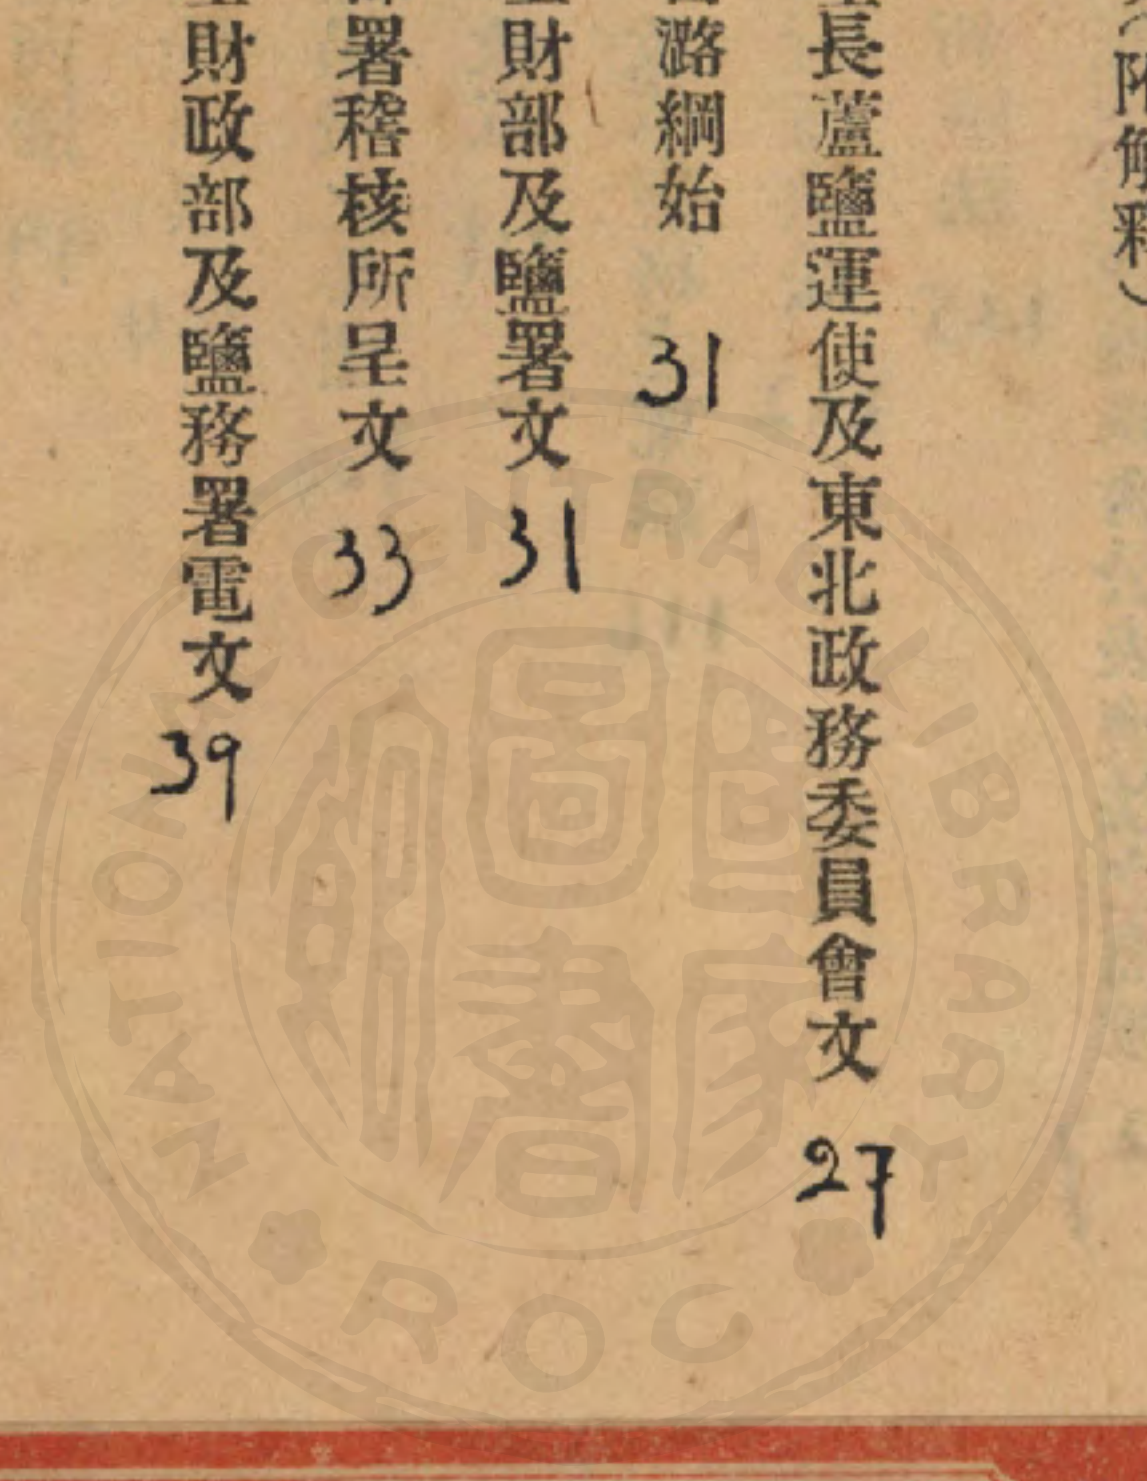 附解釋）
長蘆鹽運使及東北政務委員會文 27
潞綱始 31
財部及鹽署文 31
署稽核所呈文 33
財政部及鹽務署電文 39
NATIONAL CENTRAL LIBRARY
ROC
國家圖書館